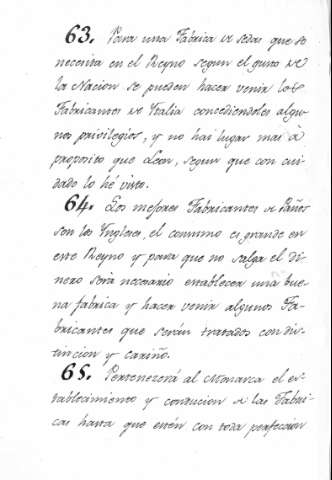 63. Para una Fabrica de sedas que se
necesita en el Reyno segun el gusto de
la Nacion se pueden hacer venir los
Fabricantes de Italia concediendoles algu-
nos privilegios, y no hai lugar mas à
proposito que Leon, segun que con cui-
dado lo hé visto.
64. Los mejores Fabricantes de Paños
son los Yngleses, el consumo es grande en
este Reyno y para que no salga el di-
nero seria necesario establecer una bue-
na fabrica y hacer venir algunos Fa-
bricantes que serán tratados con dis-
tincion y cariño.
65. Pertenecerá al Monarca el es-
tablecimiento y conducion de las Fabri-
cas hasta que estén con toda perfeccion